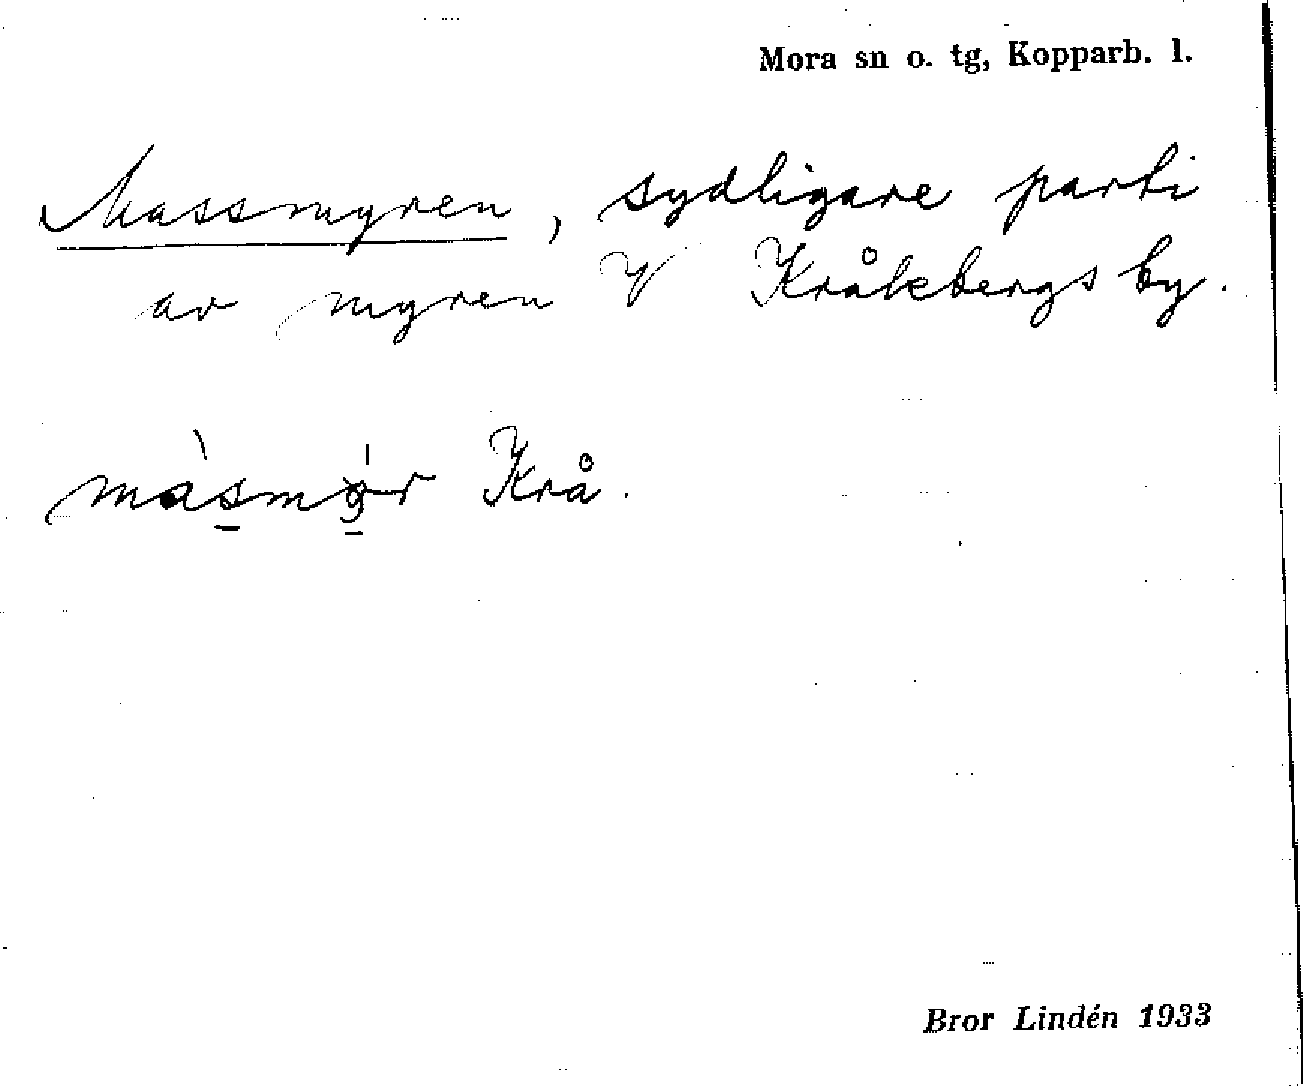 Mora sn o. tg, Kopparb. l.
Massmyren, sydligare parti
av myren V Kråkbergs by.
Krå.
Bror Lindén 1933